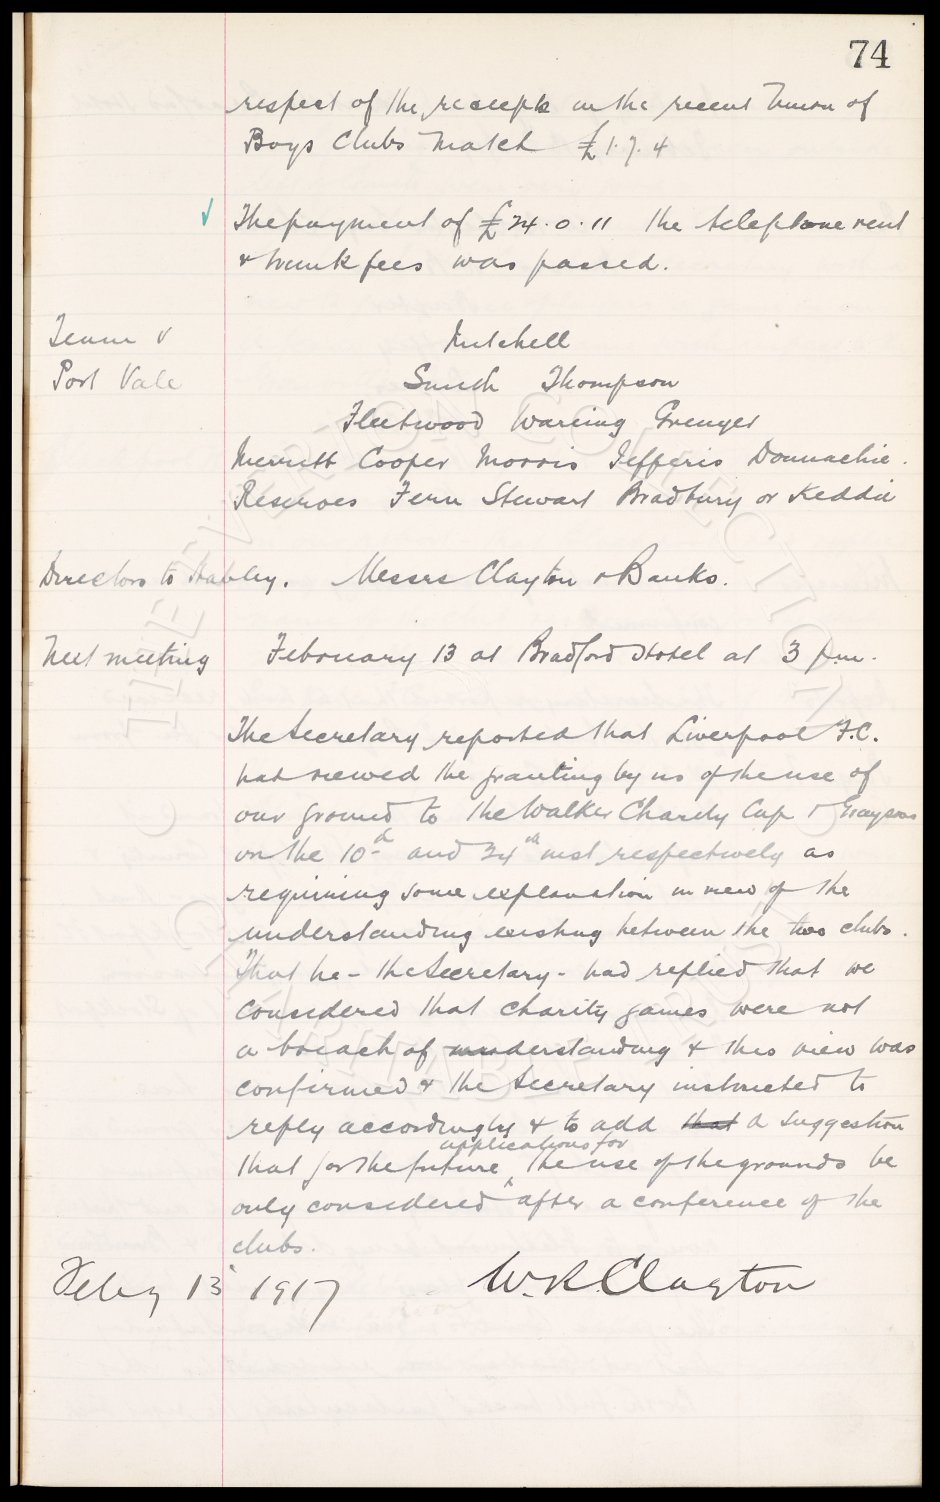 74
respect of the receipts in the recent Union of
Boys Clubs match £1.7.4
✓ The payment of £24.0.11 the telephone rent
& trunk fees was passed.
Team v
Port Vale
Mitchell
Smith Thompson
Fleetwood Wareing Grenyer
Merritt Cooper Morris Jefferis Donnachie.
Reserves Fern Stewart Bradbury or Keddie
Directors to Hanley. Messrs Clayton & Banks.
Next meeting February 13 at Bradford Hotel at 3 p.m.
The Secretary reported that Liverpool F.C.
had viewed the granting by us of the use of
our ground to the Walker Charity Cup & Graysons
on the 10th and 24th inst respectively as
requiring some explanation in view of the
understanding existing between the two clubs.
That he - the Secretary - had replied that we
considered that charity games were not
a breach of understanding & this view was
confirmed & the Secretary instructed to
reply accordingly & to add that a suggestion
that for the future applications for the use of the grounds be
only considered after a conference of the
clubs.
Feby 13 1917 W.R. Clayton
THE EVERTON COLLECTION
CHARITABLE TRUST